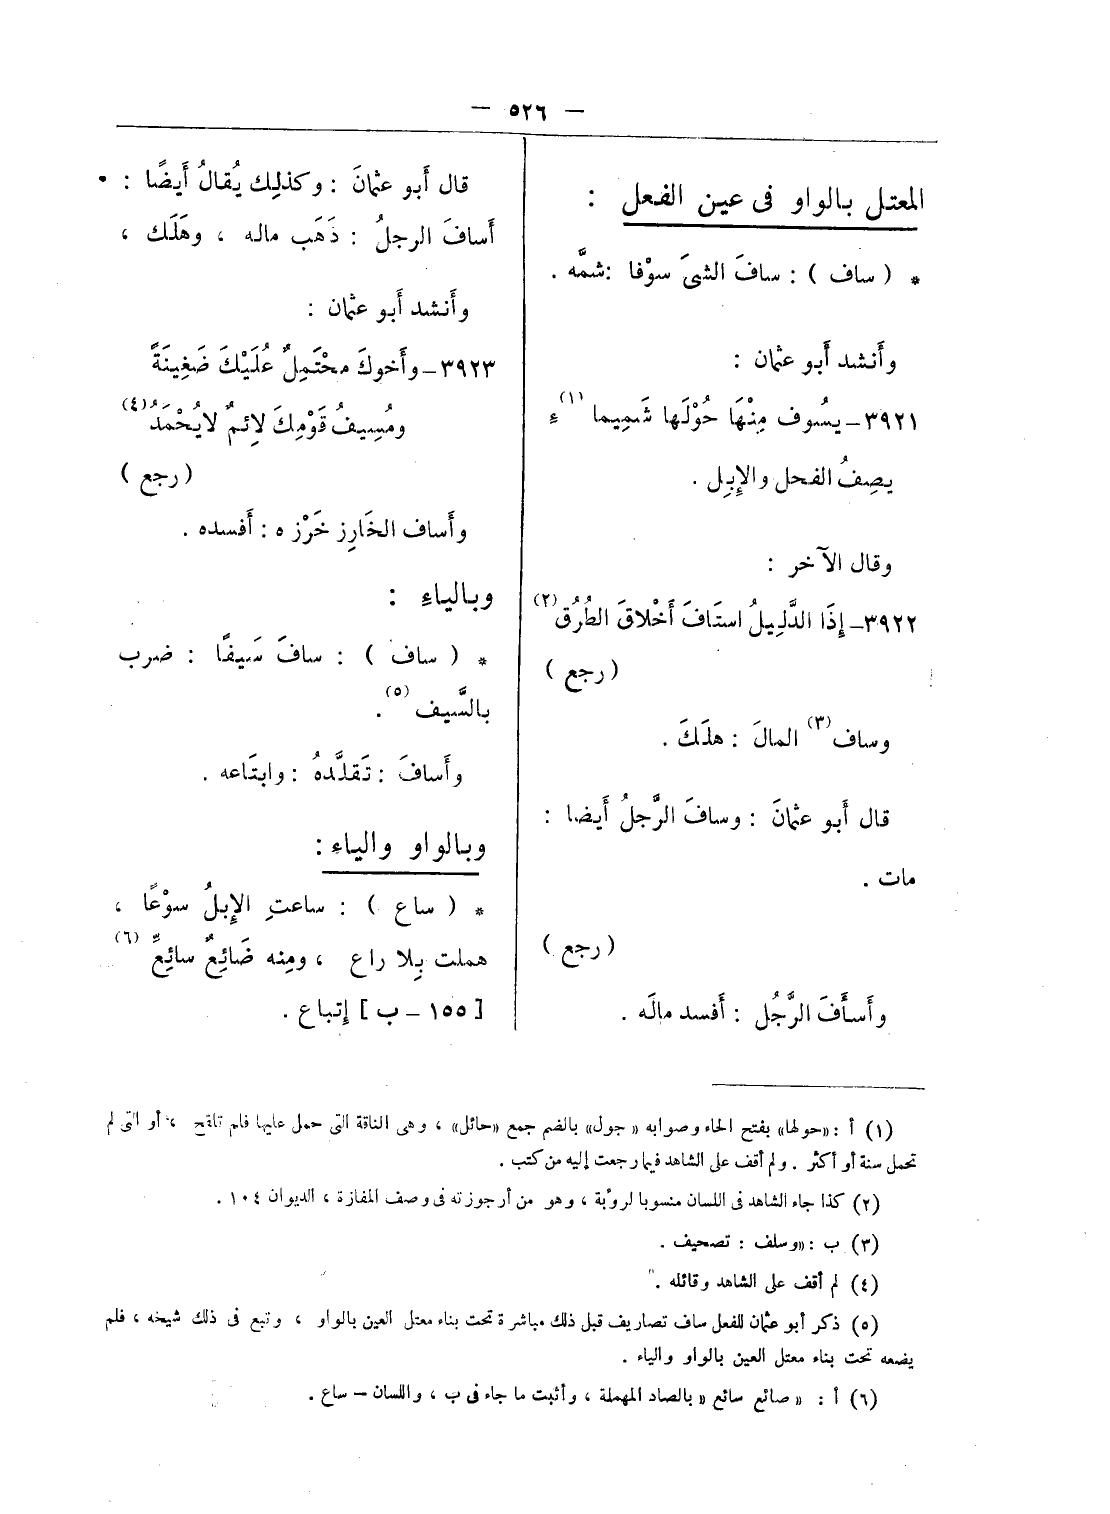 — ٥٢٦ —
المعتل بالواو فى عين الفعل :
* ( ساف ) : سافَ الشىَ سوْفا :شمَّه .
وأَنشد أَبو عثمان :
٣٩٢١ـ يسُوف مِنْهَا حُوْلَها شَمِيما (١)
يصِفُ الفحل والإِبِل .
وقال الآخر :
٣٩٢٢ـ إِذَا الدَّلِيلُ استَافَ أَخْلاقَ الطُرُق (٢)
( رجع )
وساف (٣) المالَ : هلَكَ .
قال أَبو عثمانَ : وسافَ الرَّجلُ أَيضا :
مات .
( رجع )
وأَسأَفَ الرَّجُل : أَفسد مالَه .
قال أَبو عثمانَ : وكذلِك يُقالُ أَيضًا :
أَسافَ الرجلُ : ذَهَب ماله ، وهَلَك ،
وأَنشد أَبو عثمان :
٣٩٢٣ـ وأَخوكَ محْتَمِلٌ عُلَيْكَ ضَغِينَةً
ومُسِيفُ قَوْمِكَ لائِمٌ لايُحْمَدُ (٤)
( رجع )
وأَساف الخَارِز خَرْز ه : أَفسده .
وبالياءِ :
* ( ساف ) : سافَ سَيفًا : ضرب
بالسَّيف (٥) .
وأَسافَ : تَقلَّدهُ : وابتَاعه .
وبالواو والياء :
* ( ساع ) : ساعتِ الإِبلُ سوْعًا ،
هملت بِلا راع ، ومِنه ضَائِعٌ سائِعٌ (٦)
[ ١٥٥ ـ ب ] إِتباع .
(١) أ : «حولها» بفتح الحاء وصوابه «جول» بالضم جمع «حائل» ، وهى الناقة التى حمل عليها فلم تلقح ، أو التى لم
تحمل سنة أو أكثر . ولم أقف على الشاهد فيما رجعت إليه من كتب .
(٢) كذا جاء الشاهد فى اللسان منسوبا لرؤبة ، وهو من أرجوزته فى وصف المفازة ، الديوان ١٠٤ .
(٣) ب : «وسلف : تصحيف .
(٤) لم أقف على الشاهد وقائله .
(٥) ذكر أبو عثمان للفعل ساف تصاريف قبل ذلك مباشرة تحت بناء معتل العين بالواو ، وتبع فى ذلك شيخه ، فلم
يضعه تحت بناء معتل العين بالواو والياء .
(٦) أ : « صائع سائع « بالصاد المهملة ، وأثبت ما جاء فى ب ، واللسان – ساع .